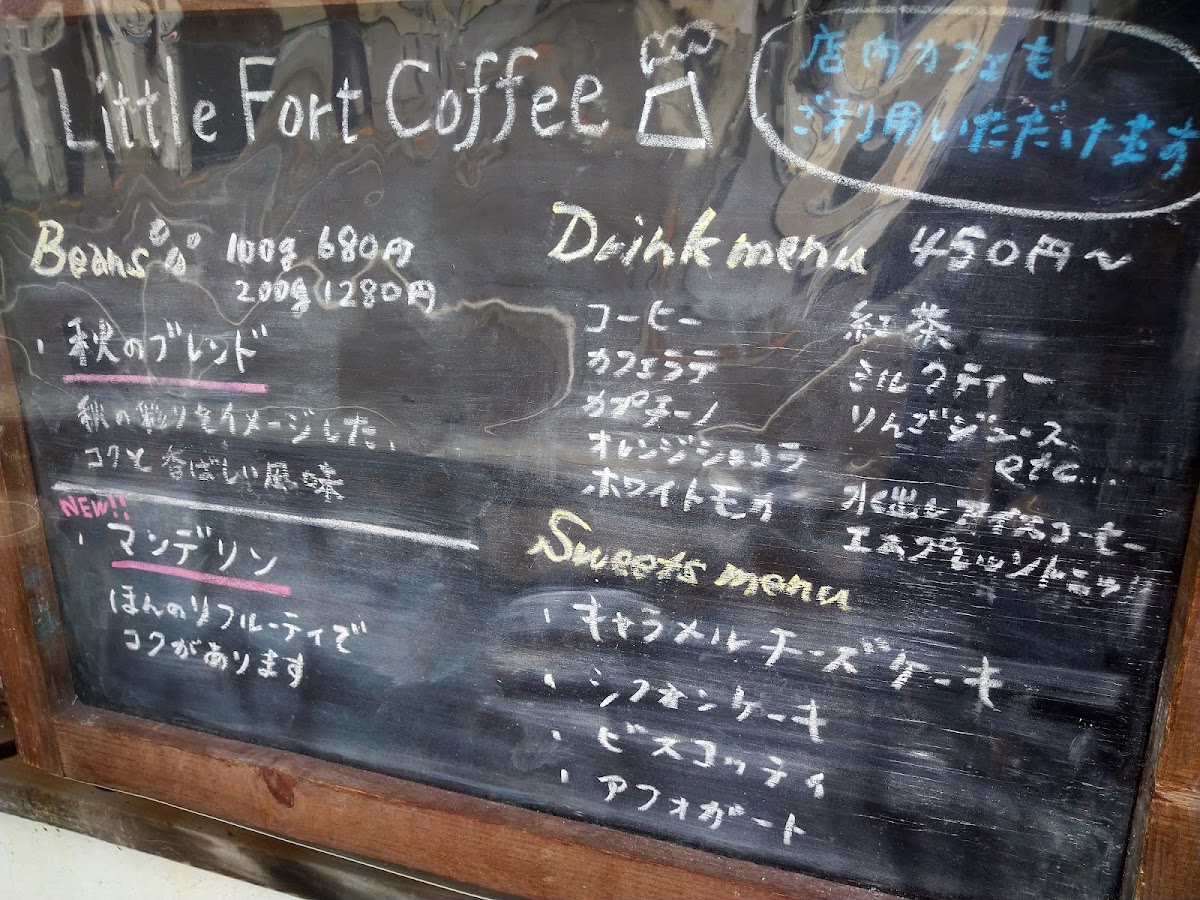 Little Fort Coffee
店内カフェも
ご利用いただけます
Beans 100g 680円
200g 1280円
・秋のブレンド
秋の彩りをイメージした、
コクと香ばしい風味
NEW!!
・マンデリン
ほんのりフルーティで
コクがあります
Drink menu 450円〜
コーヒー
カフェラテ
カプチーノ
オレンジショコラ
ホワイトモカ
紅茶
ミルクティー
りんごジュース
etc...
水出しアイスコーヒー
エスプレッソトニック
Sweets menu
・キャラメルチーズケーキ
・シフォンケーキ
・ビスコッティ
・アフォガート